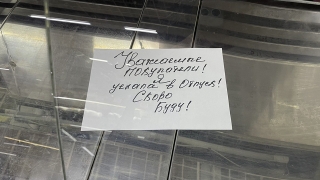 Уважаемые
покупатели!
Я
уехала в Отпуск!
Скоро
Буду!